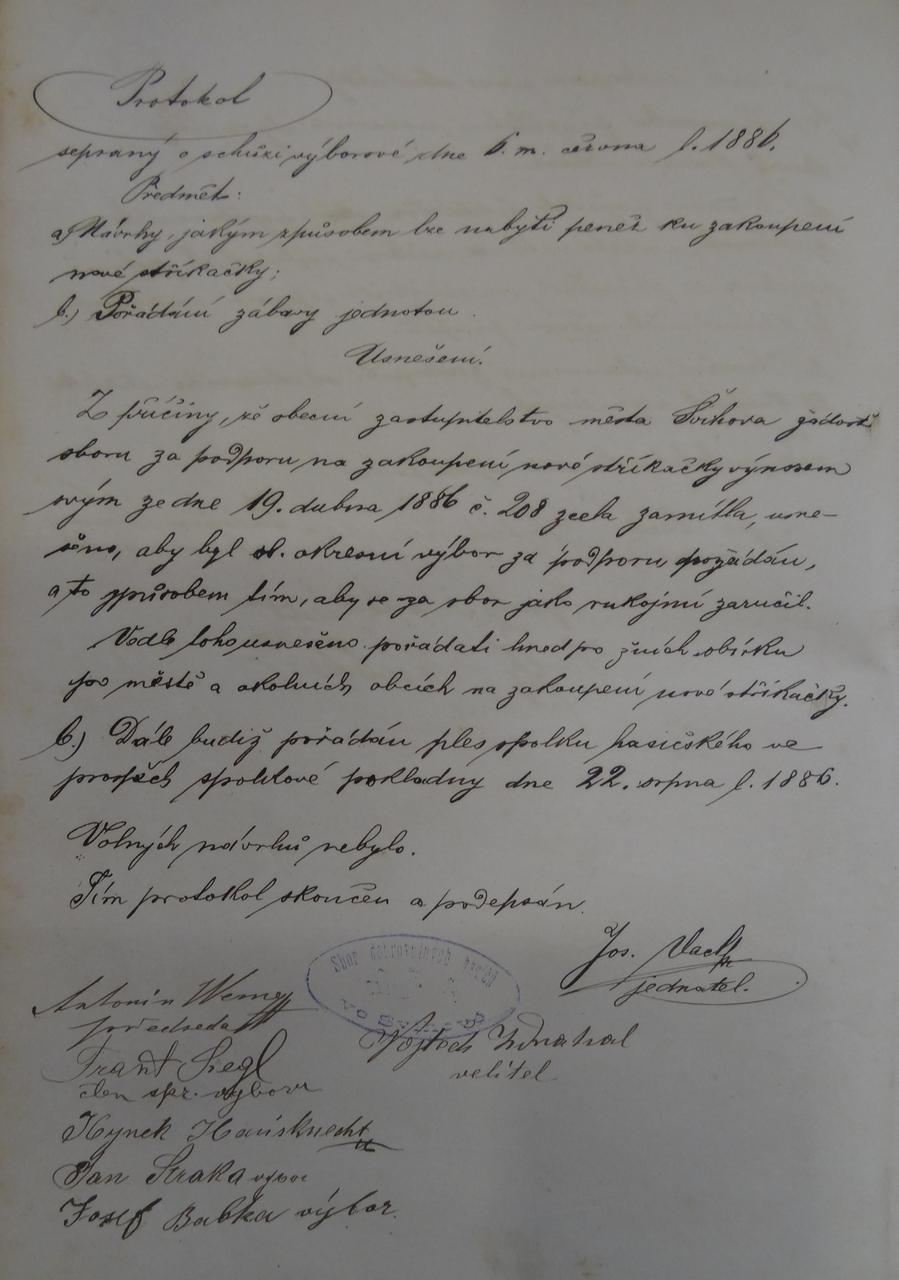 Protokol
sepsaný o schůzi výborové dne 6. m. června l. 1886.
Předmět:
a) Návrhy, jakým způsobem lze nabýti peněz ku zakoupení
nové stříkačky;
b.) Pořádání zábavy jednotou.
Usnešení.
Z příčiny, že obecní zastupitelstvo města Švihova žádost
sboru za podporu na zakoupení nové stříkačky výnosem
svým ze dne 19. dubna 1886 č. 208 zcela zamítla, usne-
šeno, aby byl sl. okresní výbor za podporu požádán,
a to způsobem tím, aby se za sbor jako rukojmí zaručil.
Vedle toho usnešeno pořádati hned po žních sbírku
po městě a okolních obcích na zakoupení nové stříkačky.
b.) Dále budiž pořádán ples spolku hasičského ve
prospěch spolkové pokladny dne 22. srpna l. 1886.
Volných návrhů nebylo.
Tím protokol skončen a podepsán.
Jos. Vach
jednatel.
Sbor dobrovolných hasičů
Antonín
předseda
Frant Siegl
člen spr. výboru
Vojtěch
velitel
Hynek Hausknecht
Jan Straka výbor
Josef Babka výbor.